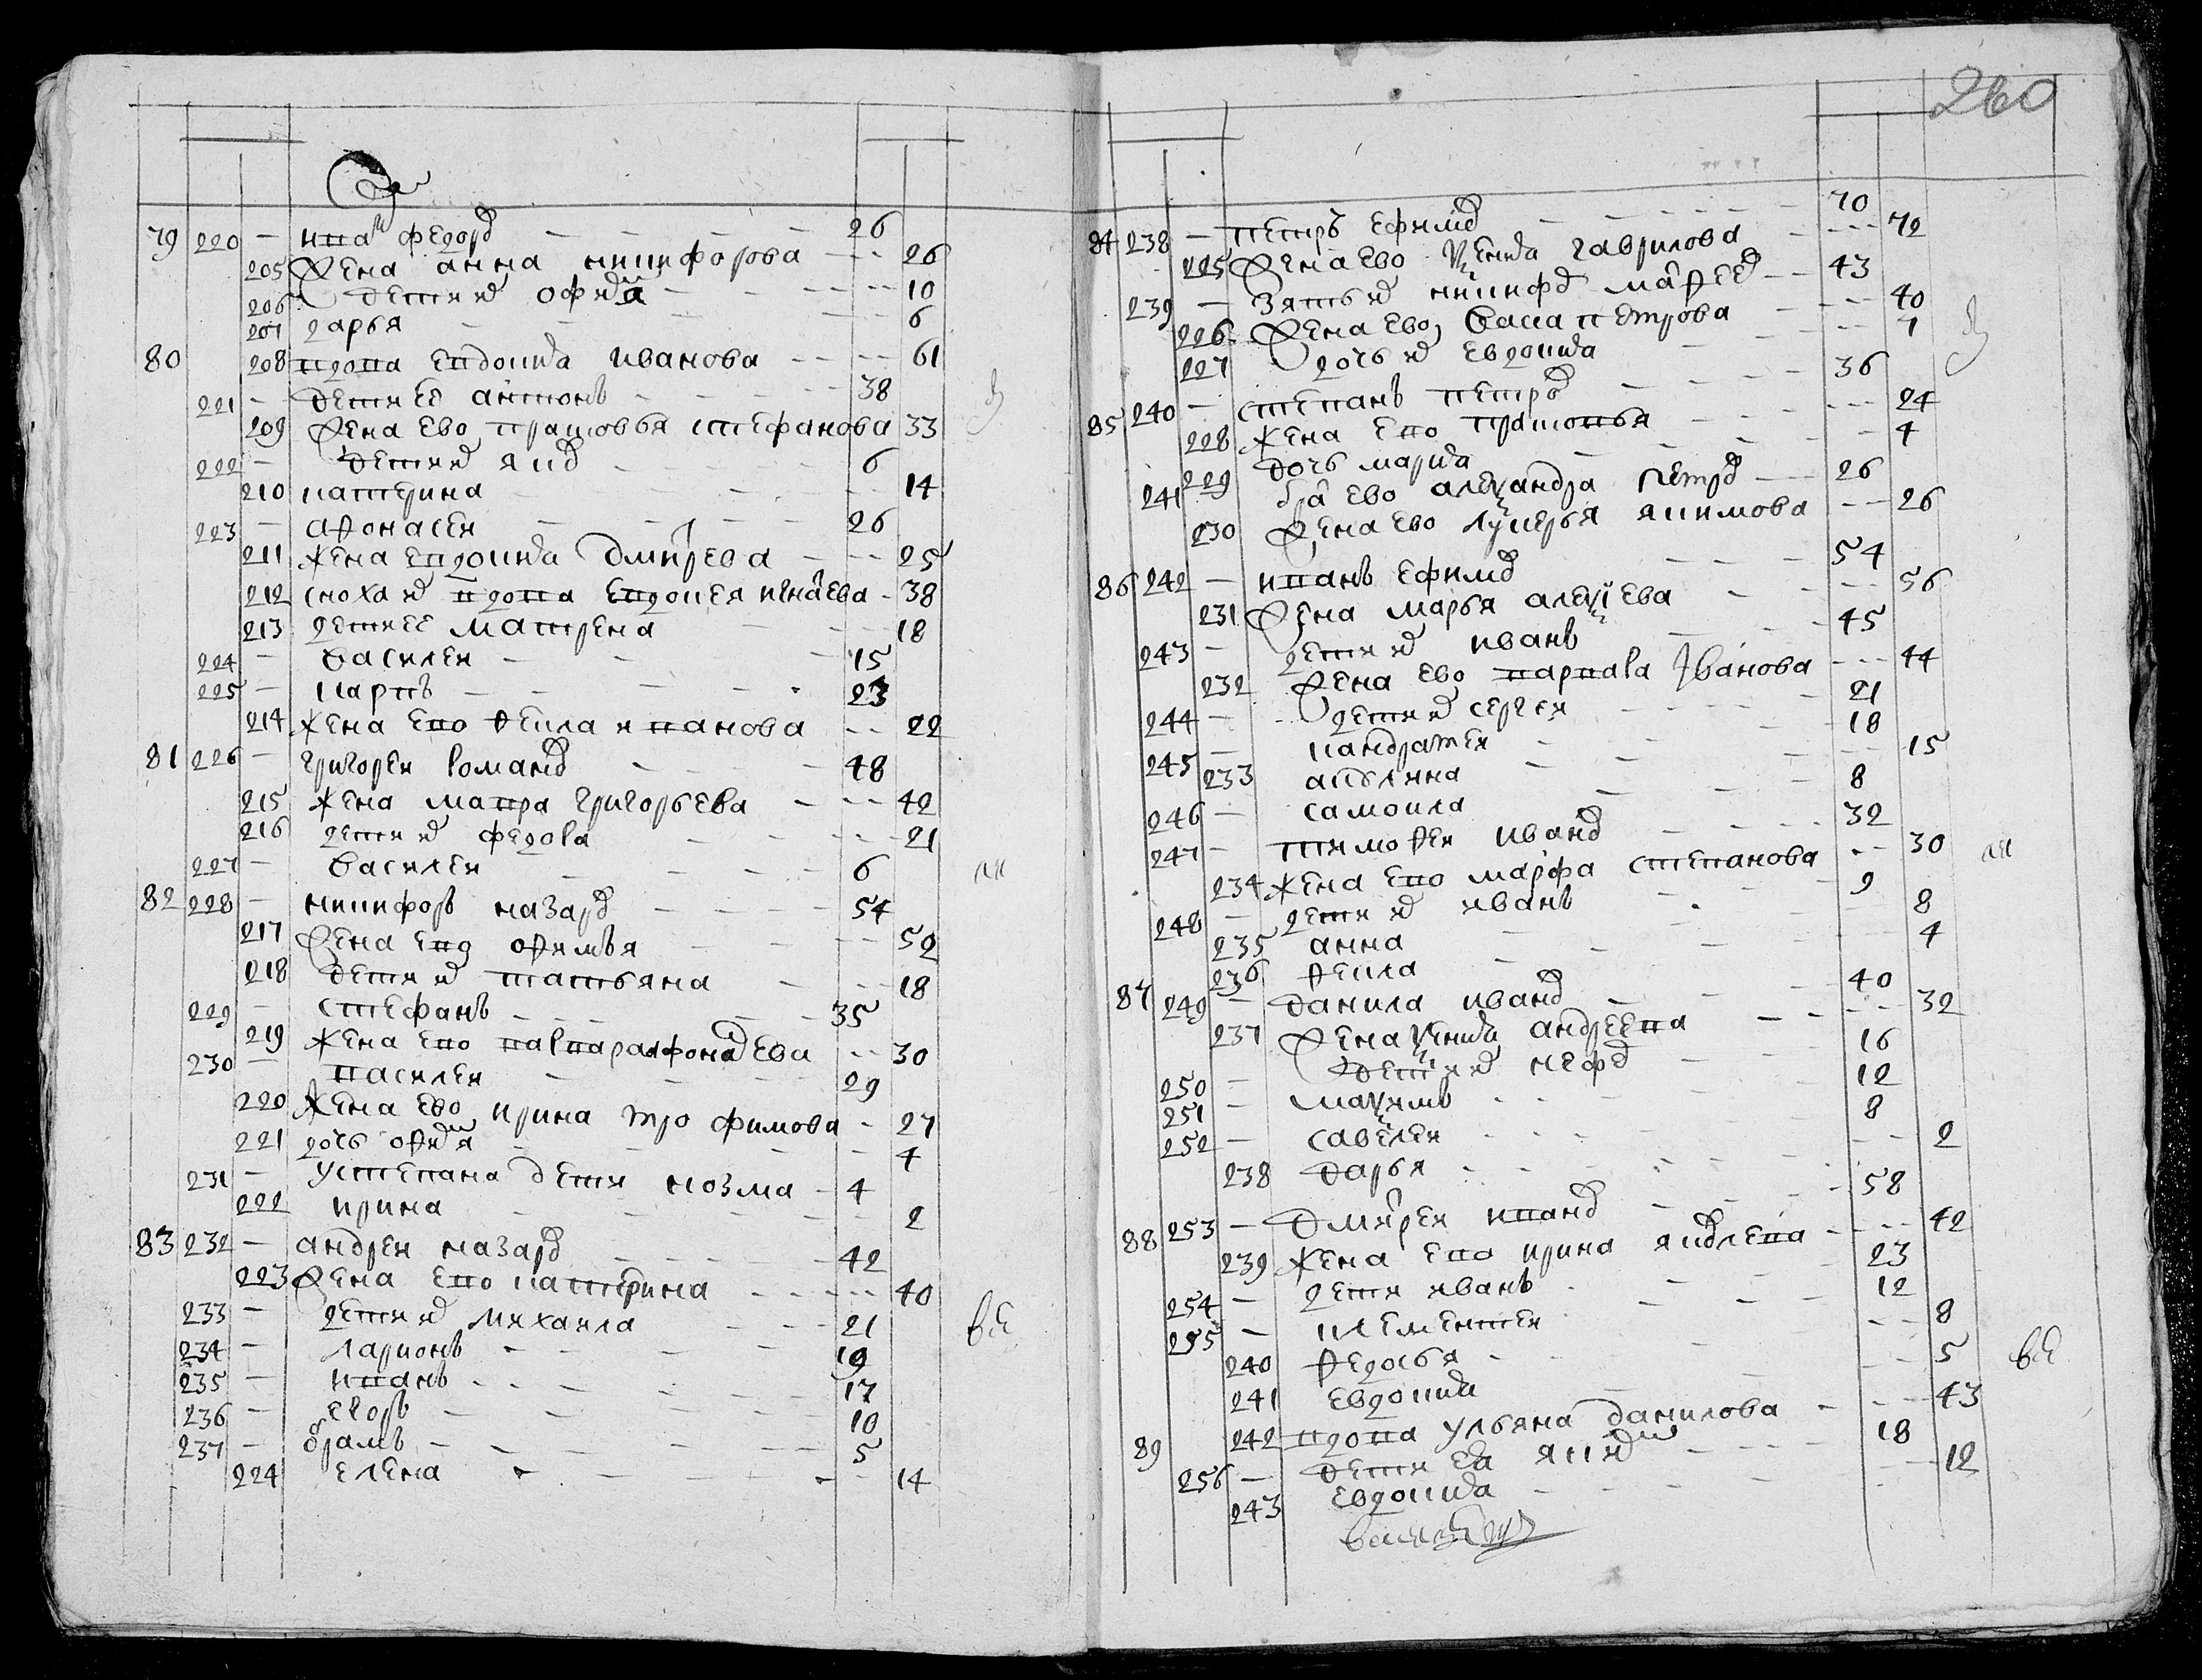 260
79 220 — иванъ федоров — 26
205 жена анна никифорова — 26
206 дети их офимиа — 10
207 дарья — 6
80 208 вдова евдокия иванова — 61
221 — дети ее антонъ — 38
209 жена ево прасковья стефанова 33
222 — дети их яков 6
210 катерина — 14
223 — афонасеи — 26
211 жена евдокия дмитрева — 25
212 сноха их вдова евдокея игнатева — 38
213 дети ее матрена — 18
224 — василеи — 15
225 — карпъ — 23
214 жена ево фекла иванова — 22
81 226 — григореи романов — 48
215 жена мавра григорьева — 42
216 дети их федора — 21
227 — василеи — 6
82 228 — никифоръ назаров — 54
217 жена ево офимья — 52
218 дети их татьяна — 18
229 — стефанъ — 35
219 жена ево варвара — 30
230 — василеи — 29
220 жена ево ирина трофимова — 27
221 дочь — 4
231 — у степана дети козма — 4
222 ирина — 2
83 232 — андреи назаров — 42
223 жена ево катерина — 40
233 — дети их михаила — 21
234 — ларионъ — 19
235 — иванъ — 17
236 — егоръ — 10
237 — абрамъ — 5
224 елена — 14
84 238 — петръ ефимов — 70
225 жена ево ксения гаврилова — 72
239 — зять их никифор матфеев — 43
226 жена ево васа петрова — 40
227 дочь их евдокия — 7
85 240 — степанъ петров — 36
228 жена ево прасковья — 24
229 дочь мария — 4
241 брат ево александра петров — 26
230 жена ево лукерья якимова — 26
86 242 — иванъ ефимов — 54
231 жена марья алексиева — 56
243 — дети их иванъ — 45
232 жена ево варвара иванова — 44
244 — дети их сергеи — 21
245 — кандратеи — 18
233 акулина — 15
246 — самоила — 8
247 — тимофеи иванов — 32
234 жена ево марфа степанова — 30
248 — дети их иванъ — 9
235 анна — 8
236 фекла — 4
87 249 — данила иванов — 40
237 жена ксения андреева — 32
250 — дети их нефед — 16
251 — максимъ — 12
252 — савелеи — 8
238 дарья — 2
88 253 — дмитреи иванов — 58
239 жена ево ирина яковлева — 42
254 — дети иванъ — 23
255 — клементеи — 12
240 федосья — 8
241 евдокия — 5
89 242 вдова ульяна данилова — 43
256 — дети ея яким — 18
243 евдокия — 12